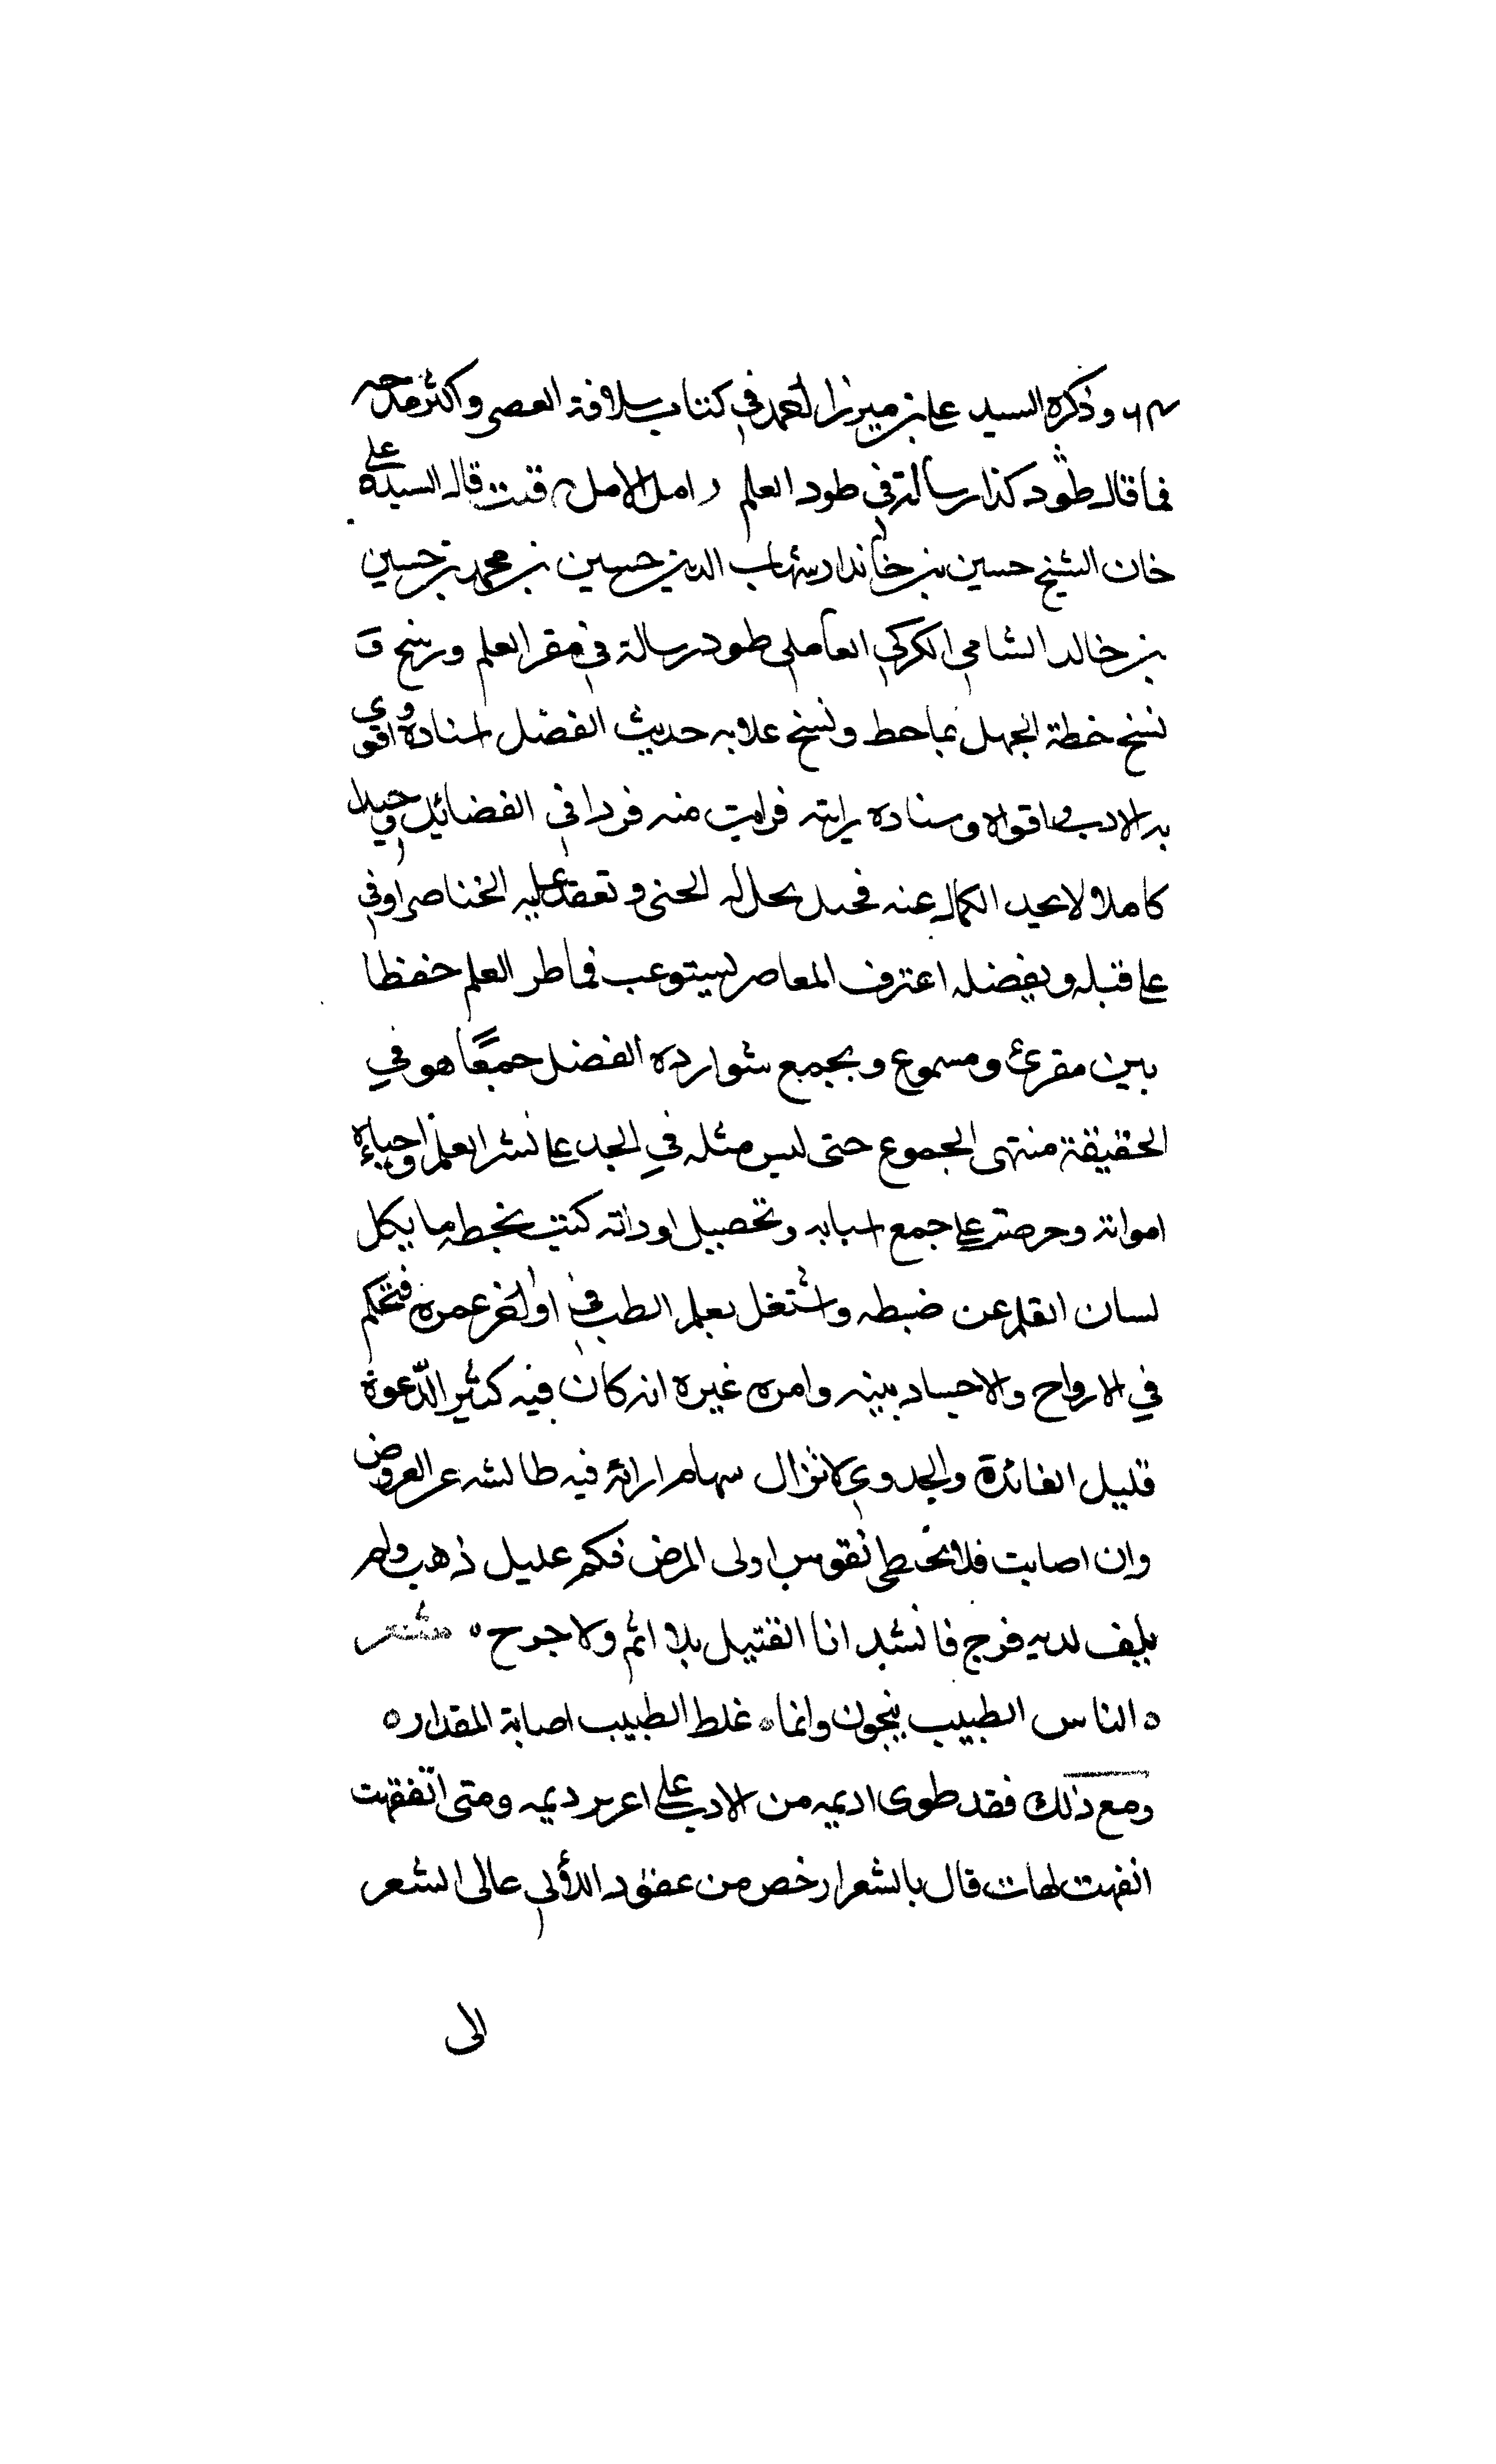 وذكره السيد علي بن ميرزا احمد في كتاب سلافة العصر واكثر مدحه
فما قال طود كذا رسا في طود العلم امل الامل قلت قال السيد علي
خان الشيخ حسين بن شهاب الدين حسين بن محمد بن حسين
بن خالد الشامي الكركي العاملي طود رسالة في مقر العلم ورسخ و
نسخ خطة الجهل بما حط ونسخ علا به حديث الفضل اسناده اقوى
به الادب اقواه وسناده رايته فرايت منه فردا في الفضائل وحيدا
كاملا لا يجد الكمال عنه فحيدا يحل له الحبى وتعقد عليه الخناصر اوفى
على قبله وبفضله اعترف المعاصر يستوعب قماطر العلم حفظا
بين مقرئ ومسموع ويجمع شوارده الفضل جمعًا هو في
الحقيقة منتهى الجموع حتى ليس مثله في الجد على نشر العلم واحياء
امواته وحرصه على جمع اسبابه وتحصيل ادواته كتب بخطه ما يكل
لسان القلم عن ضبطه واشتغل بعلم الطب في اواخر عمره فتحكم
في الارواح والاجساد بنهيه وامره غيره انه كان فيه كثير الدّعوة
قليل الفائدة والجدوى لا تزال سهام ارائه فيه طائشه عن العروض
وان اصابت فلا تخطي نفوس اولى المرض فكم عليل ذهب ولم
يلف لديه فرج فانشد انا القتيل بلا اثم ولا حرج ه شعر
ه الناس الطبيب ينجون وانما ه غلط الطبيب اصابة المقدار ه
ومع ذلك فقد طوى اديمه من الادب على اغزر ديمه ومتى اتفقهت
انفهت لهات قال بالشعر ارخص من عقود اللألي عالى الشعر
الى